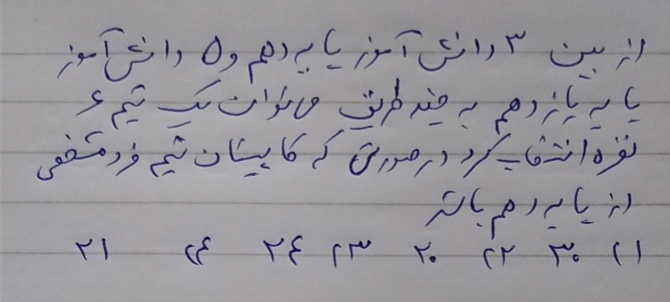 از بین ۳ دانش آموز پایه دهم و ۵ دانش آموز
پایه یازدهم به چند طریق می‌توان یک تیم ۶
نفره انتخاب کرد در صورتی که کاپیتان تیم فرد مشخصی
از پایه دهم باشد
۱) ۲۱ ۲) ۳۰ ۳) ۲۰ ۴) ۲۴ ۲۱